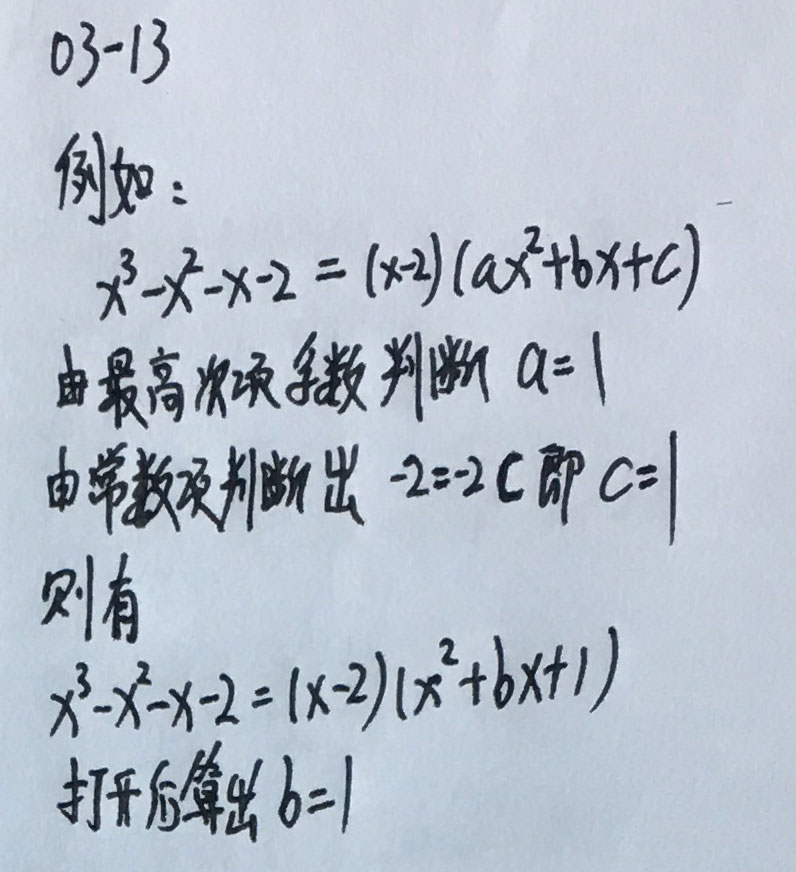 03-13
例如：
x³-x²-x-2=(x-2)(ax²+bx+c)
由最高次项系数判断 a=1
由常数项判断出 -2=-2C 即 C=1
则有
x³-x²-x-2=(x-2)(x²+bx+1)
打开后算出 b=1